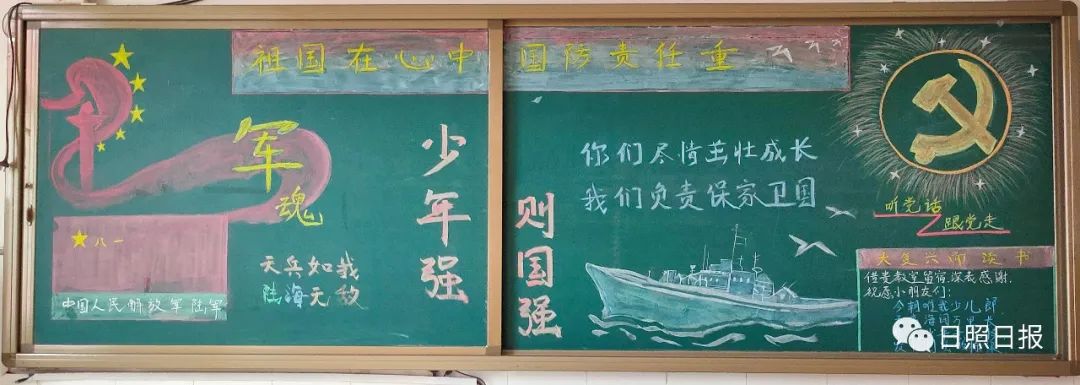 祖国在心中 国防责任重
军
魂
八一
中国人民解放军陆军
天兵如我
陆海无敌
少年强
则国强
你们尽情茁壮成长
我们负责保家卫国
听党话
跟党走
复兴而读书
借贵教室留宿,深表感谢.
祝愿小朋友们:
今朝唯我少儿郎
万里
日照日报